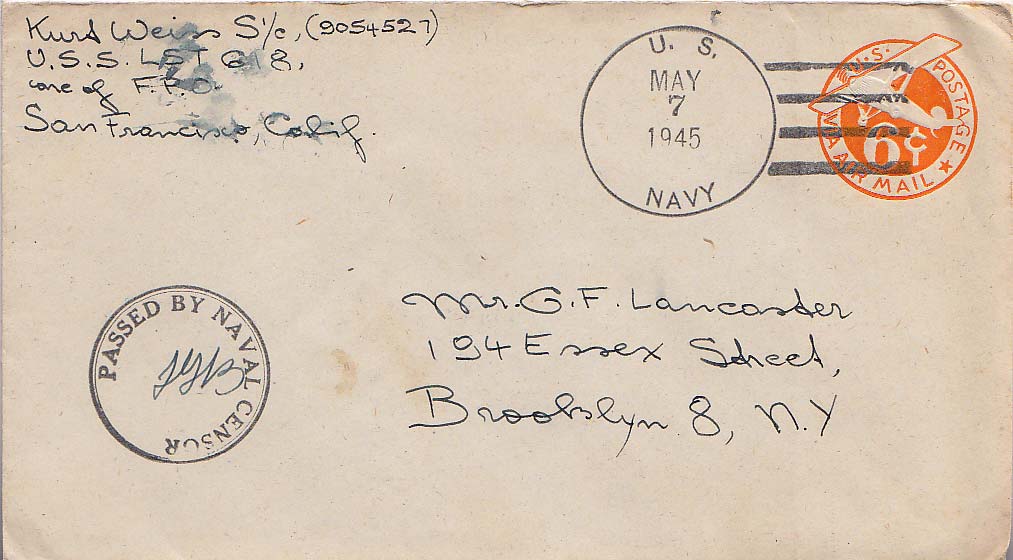 Kurt Weiss S1/c, (9054527)
U.S.S. LST 618,
care of F.P.O.
San Francisco, Calif.
U. S.
MAY
7
1945
NAVY
U.S. POSTAGE
6¢
VIA AIR MAIL
PASSED BY NAVAL CENSOR
Mr. G. F. Lancaster
194 Essex Street,
Brooklyn 8, N.Y